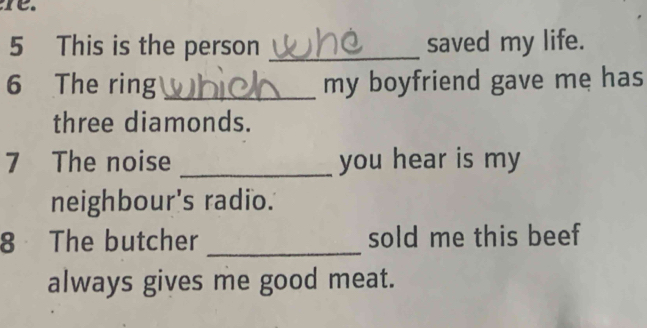 5 This is the person who saved my life.
6 The ring which my boyfriend gave me has
three diamonds.
7 The noise ___________ you hear is my
neighbour's radio.
8 The butcher ___________ sold me this beef
always gives me good meat.